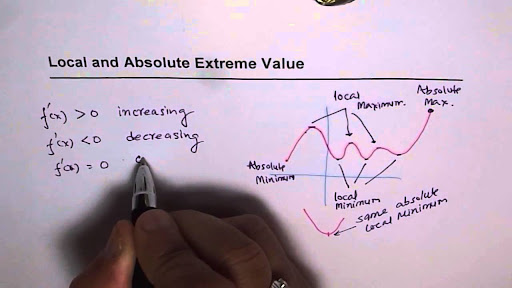 Local and Absolute Extreme Value
f'(x) > 0 increasing
f'(x) < 0 decreasing
f'(x) = 0
local
Maximum.
Absolute
Max.
Absolute
Minimum
local
Minimum
same absolute
local minimum